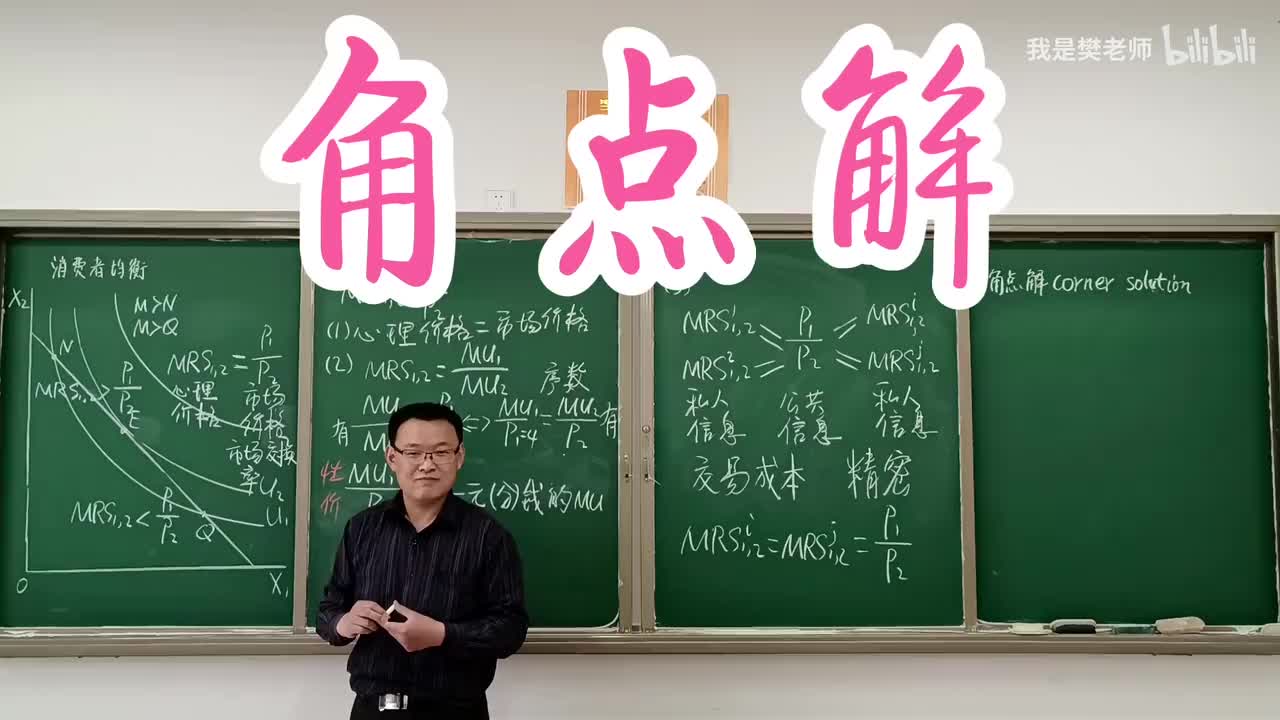 角点解
我是樊老师 bilibili
消费者均衡
X₂
M>N
M>Q
N
MRS₁,₂ = P₁/P₂
MRS₁,₂ > P₁/P₂
心理
价格
市场
价格
E
市场交换
率
U₂
U₁
MRS₁,₂ < P₁/P₂
Q
O
X₁
(1) 心理价格=市场价格
(2) MRS₁,₂ = MU₁/MU₂
序数
有
⇔ MU₁/P₁=4 = MU₂/P₂ 有
性
价
MU₁
元(分)钱的MU
MRSⁱ₁,₂
P₁/P₂
MRSʲ₁,₂
私人
信息
公共
信息
私人
信息
交易成本 精密
MRSⁱ₁,₂ = MRSʲ₁,₂ = P₁/P₂
角点解 corner solution